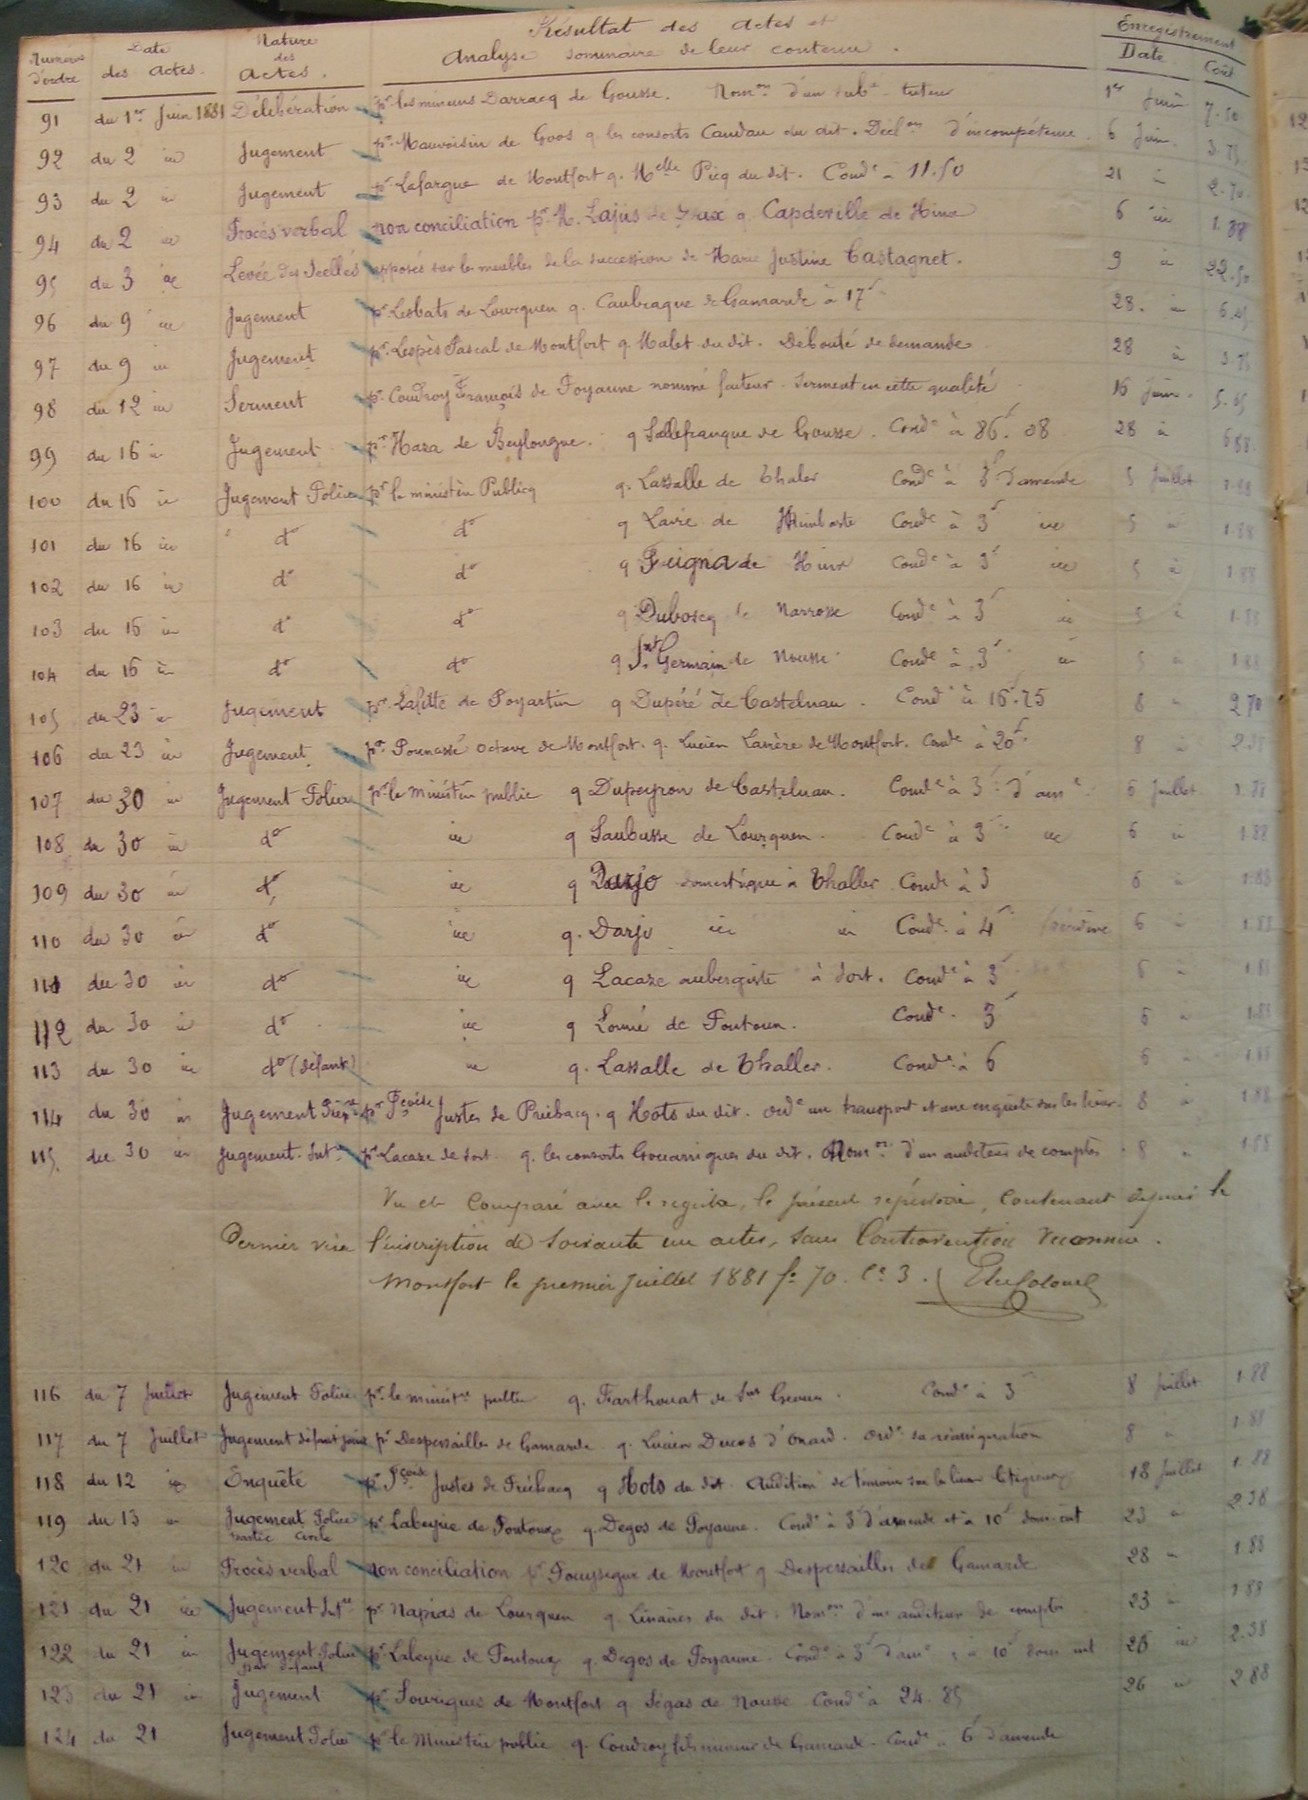 Numéros d'ordre Date des actes. Nature des actes. Résultat des actes et analyse sommaire de leur contenu. Enregistrement Date Coût
91 du 1er Juin 1881 Délibération pr les mineurs Darracq de Gousse. Nomon d'un subé tuteur 1er Juin 7.50
92 du 2 id Jugement pr Mauvoisin de Goos q. les consorts Caudau du dit. Déclon d'incompétence 6 Juin. 3.75
93 du 2 id Jugement pr Lafargue de Montfort q. Melle Picq du dit. Conde à 11.50 21 id 2.70
94 du 2 id Procès verbal non conciliation pr M. Lajus de Dax q Capdeville de Hinx 6 id 1.88
95 du 3 id Levée des Scellés apposés sur les meubles de la succession de Marie Justine Castagnet. 9 id 22.50
96 du 9 id Jugement pr Lesbats de Lourquen q. de Gamarde à 17f 28. id
97 du 9 id Jugement pr Lespès Pascal de Montfort q Malet du dit. Débouté de demande 28 id 3.75
98 du 12 id Serment pr Coudroy François de Poyanne nommé facteur. Serment en cette qualité 16 juin.
99 du 16 id Jugement pr Haza de Beylongue. q Sallefranque de Gousse. Conde à 86f.08 28 id 6.88
100 du 16 id Jugement Police pr le ministère Public q. Lassalle de Thaler Conde à 3f d'amende 5 Juillet 1.88
101 du 16 id do do q Lavie de Mimbaste Conde à 3f id 5 id 1.88
102 du 16 id do do q Feigna de Hinx Conde à 3f id 5 id 1.88
103 du 16 id do do q Duboscq de Narrosse Conde à 3f id 5 id 1.88
104 du 16 id do do q St Germain de Nousse Conde à 3f id 5 id 1.88
105 du 23 id Jugement pr Lafitte de Poyartin q Dupéré de Castelnau. Conde à 16f.75 8 id 2.70
106 du 23 id Jugement pr Octave de Montfort. q. Lucien Larrère de Montfort. Conde à 20f. 8 id
107 du 30 id Jugement Police pr le ministère public q Dupeyron de Castelnau. Conde à 3f d'ame 6 Juillet 1.88
108 du 30 id do id q Saubusse de Lourquen. Conde à 3f id 6 id 1.88
109 du 30 id do id q Darjo domestique à Thaller Conde à 3 6 id 1.88
110 du 30 id do id q. Darjo id id Conde à 4f récidive 6 id 1.88
111 du 30 id do id q Lacaze aubergiste à Sort. Conde à 3f 6 id 1.88
112 du 30 id do id q Lonné de Pontoux. Conde 3f 6 id 1.88
113 du 30 id do (défaut) id q. Lassalle de Thaller. Conde à 6 6 id 1.88
114 du 30 id Jugement pr Justes de Préchacq. q Hots du dit. orde un transport et une enquête sur les lieux. 8 id 1.88
115. du 30 id Jugement. Intre pr Lacaze de Sort. q. les consorts du dit. Nomon d'un auditeur de comptes 8 id 1.88
Vu et Comparé avec le registre, le présent répertoire, Contenant depuis le
Dernier visa l'inscription de soixante un actes, sans Contravention reconnue.
Montfort le premier juillet 1881 fo 70. Ce 3.
116 du 7 Juillet Jugement Police pr le ministre public q. Farthouat de St Geours. Conde à 3f 8 Juillet 1.88
117 du 7 Juillet Jugement défaut pr Despersailles de Gamarde q. Lucien Ducos d'Onard. orde sa réassignation 8 id 1.88
118 du 12 id Enquête pr Justes de Préchacq q Hots du dit. Audition de témoins sur les lieux litigieux 18 Juillet 1.88
119 du 13 id Jugement Police partie civile pr Labeyrie de Pontoux q. Degos de Poyanne. Conde à 3f d'amende et à 10f dom. int 23 id 2.38
120 du 21 id Procès verbal non conciliation pr Pouysegur de Montfort q Despersailles de Gamarde 28 id 1.88
121 du 21 id Jugement Intre pr Napias de Lourquen q. Linaires du dit. Nomon d'un auditeur de comptes 23 id 1.88
122 du 21 id Jugement Police par défaut pr Labeyrie de Pontoux q. Degos de Poyanne. Conde à 3f d'ame à 10f dom int 26 id 2.38
123 du 21 id Jugement pr Lourigues de Montfort q Ségas de Nousse Conde à 24.85 26 id 2.88
124 du 21 Jugement Police pr le Ministère public q. Coudroy fils mineur de Gamarde. Conde à 6f d'amende